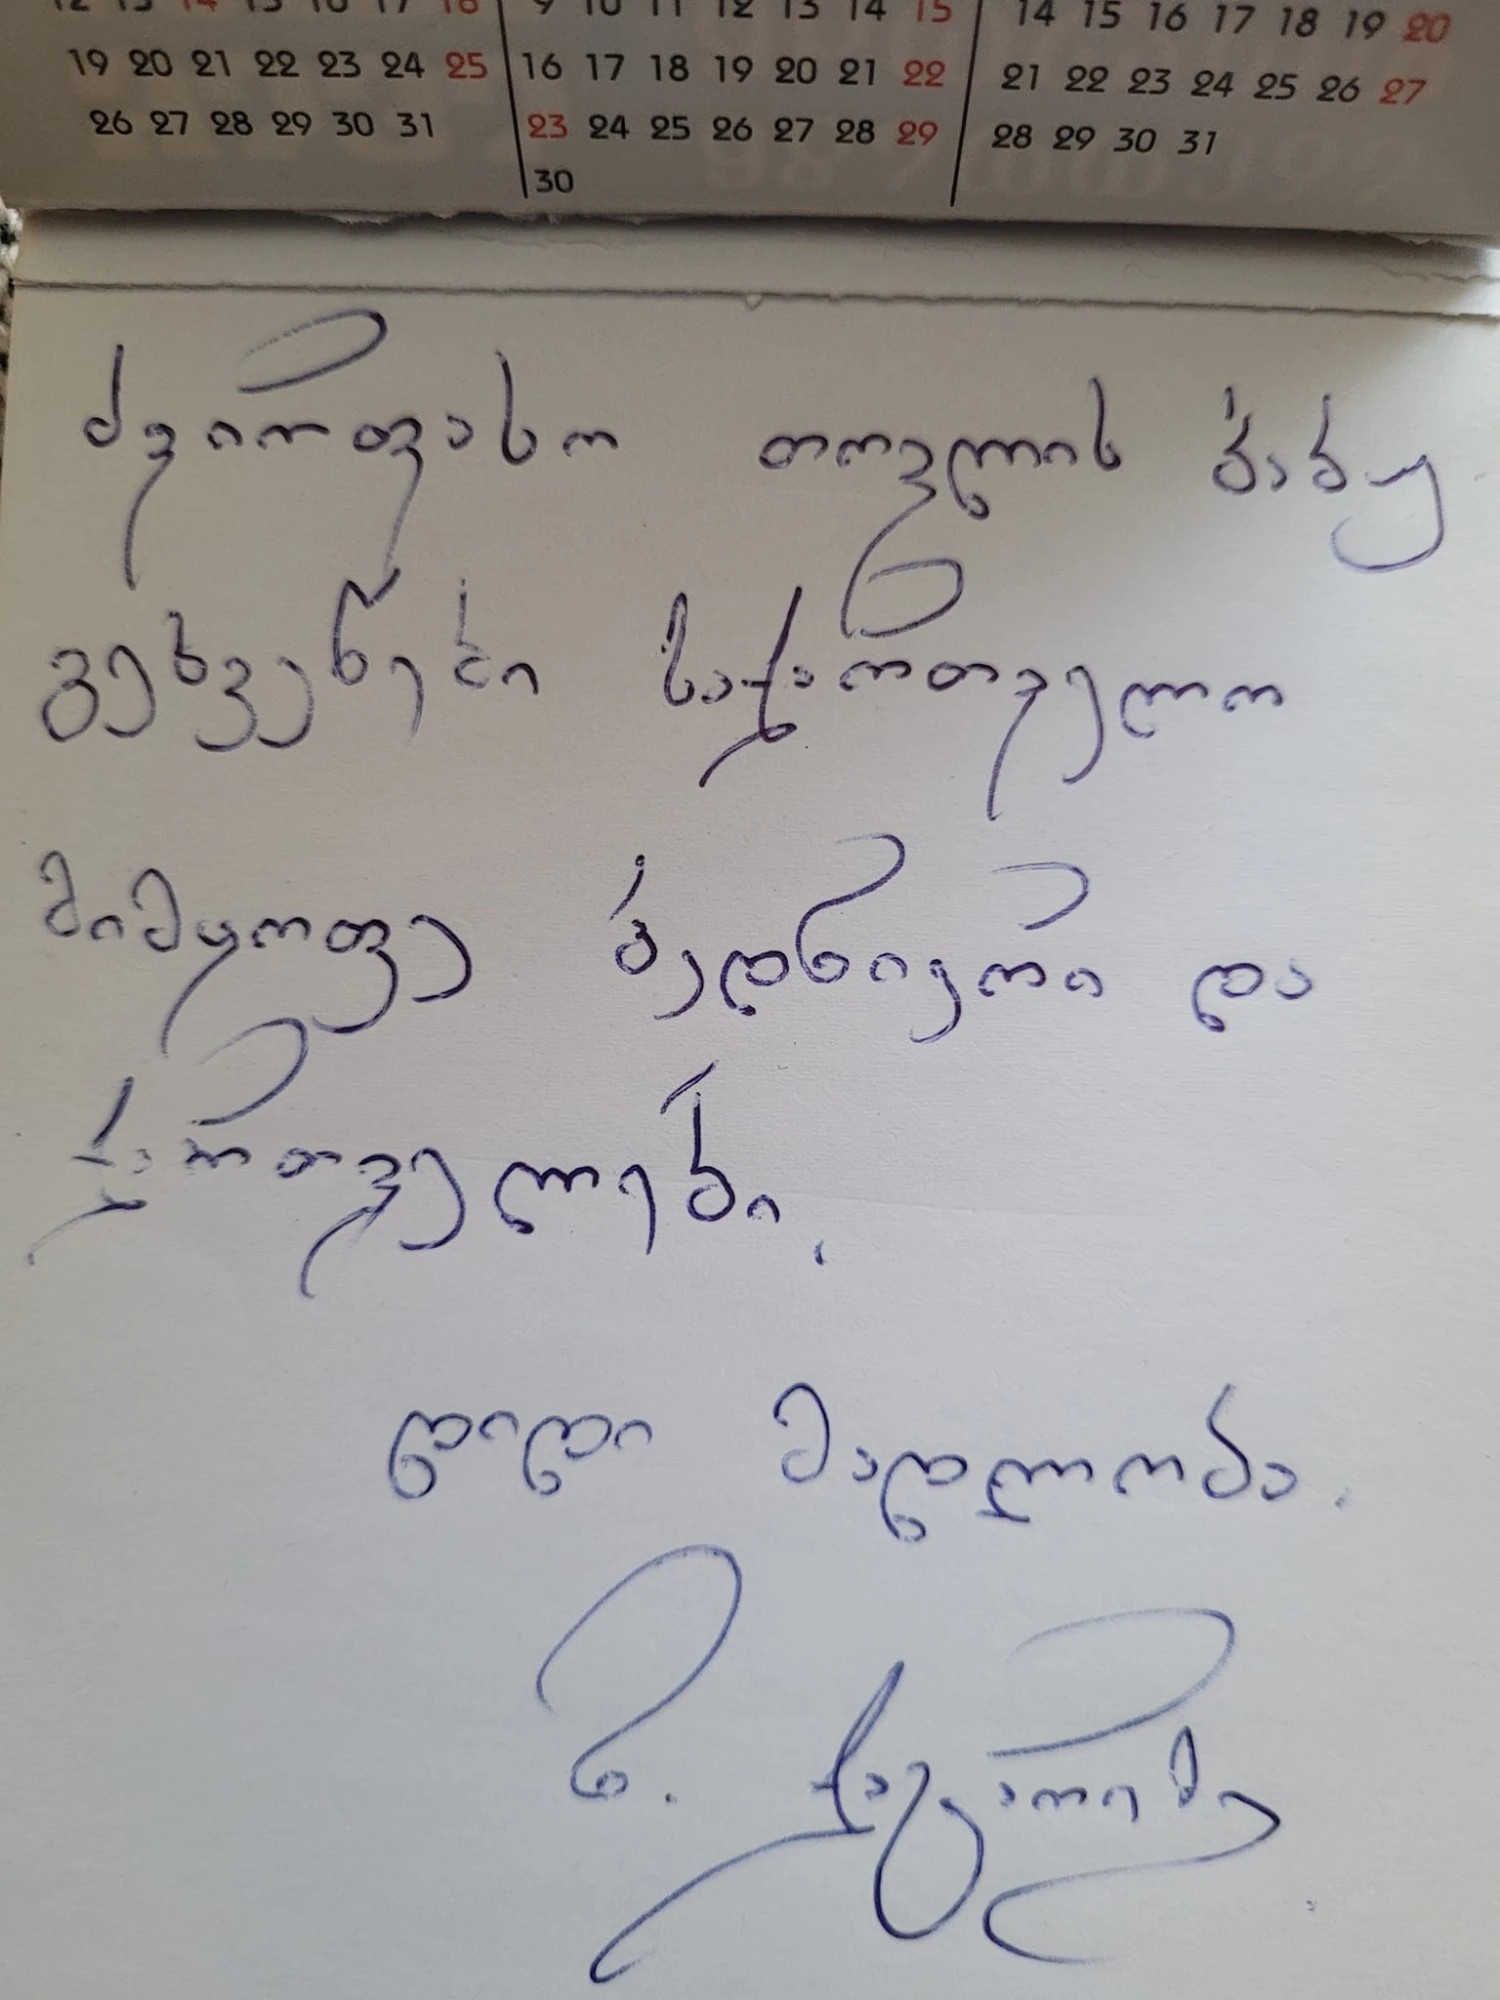 12 13 14 15 16 17 18 9 10 11 12 13 14 15 14 15 16 17 18 19 20
19 20 21 22 23 24 25 16 17 18 19 20 21 22 21 22 23 24 25 26 27
26 27 28 29 30 31 23 24 25 26 27 28 29 28 29 30 31
30
ძვირფასო თოვლის ბაბუ
გეხვეწები საქართველო
მიმყოფე ბედნიერი და
ქართველები.
დიდი მადლობა.
ნ.